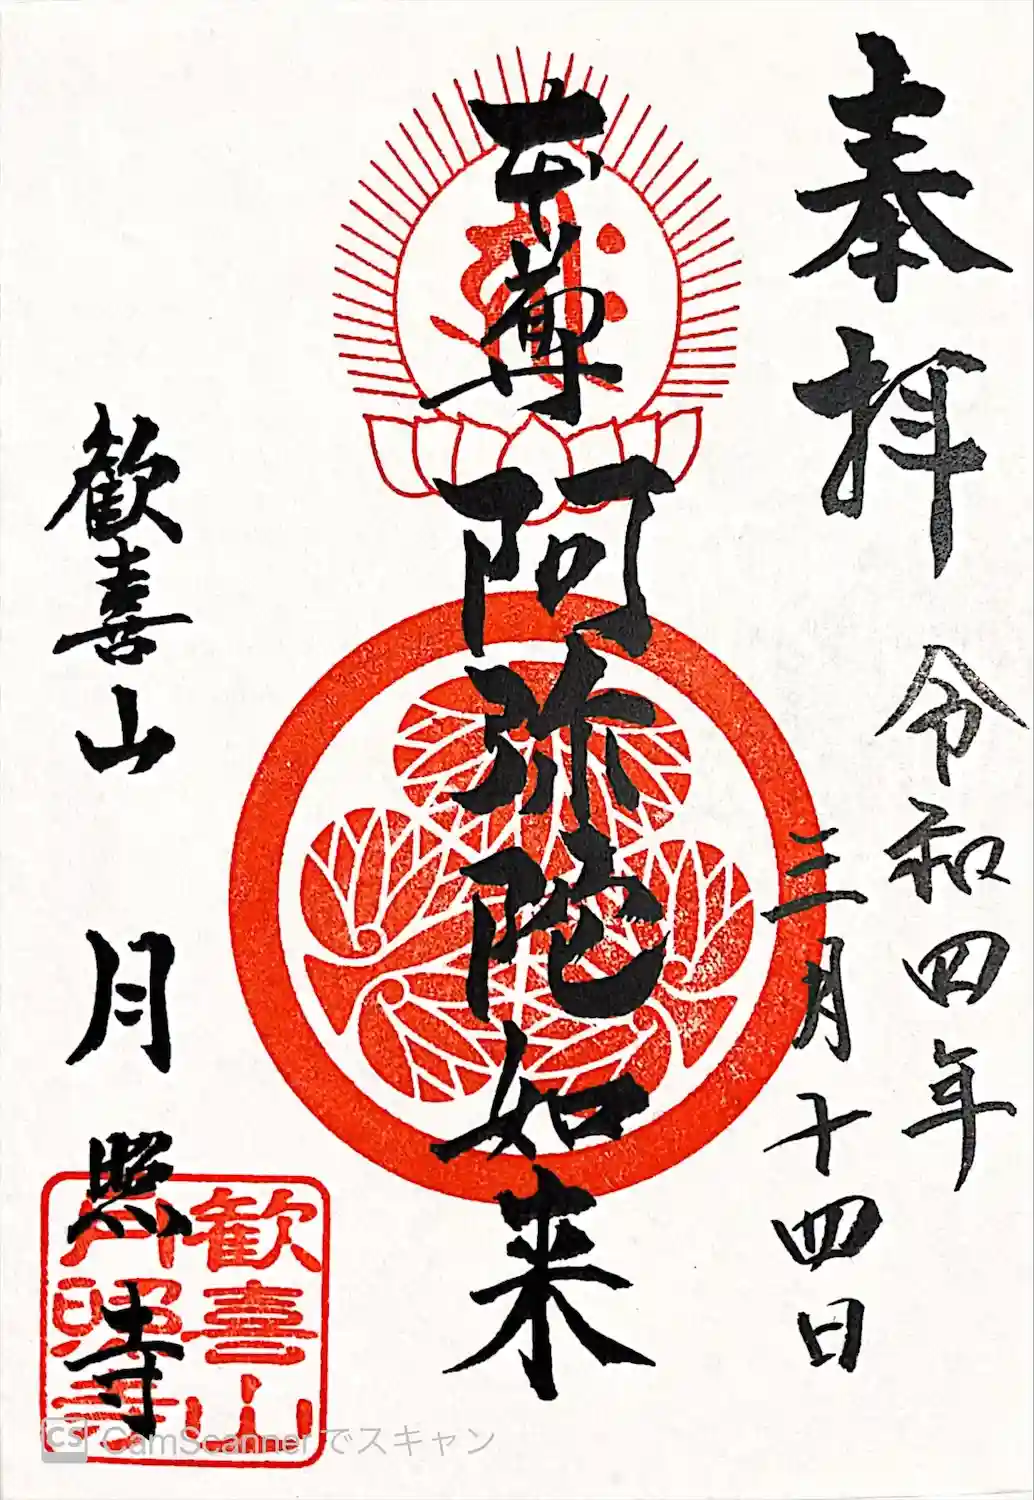 奉拝
令和四年
三月十四日
本尊
阿弥陀如来
歓喜山
月照寺
歓喜山
月照寺
CS CamScannerでスキャン